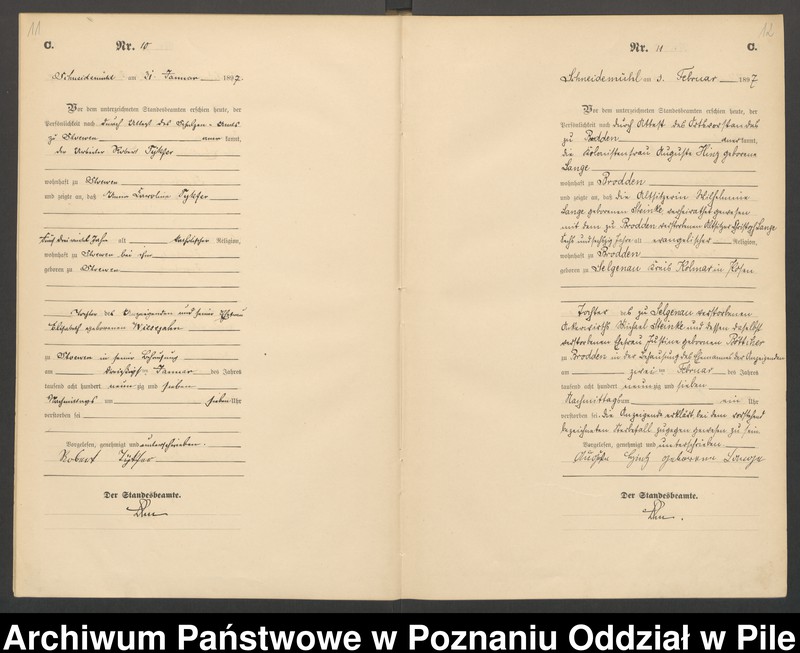 11
C.
Nr. 10
Schneidemühl am 31 Januar 1897.
Vor dem unterzeichneten Standesbeamten erschien heute, der
Persönlichkeit nach durch Attest des Schulzen-Amts
zu Stoewen anerkannt,
der Arbeiter Robert
wohnhaft zu Stoewen
und zeigte an, daß Caroline
alt katholischer Religion,
wohnhaft zu Stoewen bei ihm
geboren zu Stoewen
Tochter des Anzeigenden und seiner Ehefrau
Elisabeth geborenen
zu Stoewen in seiner Behausung
am dreißigsten Januar des Jahres
tausend acht hundert neunzig und sieben
Nachmittags um sieben Uhr
verstorben sei
Vorgelesen, genehmigt und unterschrieben.
Robert
Der Standesbeamte.
12
Nr. 11
C.
Schneidemühl am 3. Februar 1897
Vor dem unterzeichneten Standesbeamten erschien heute, der
Persönlichkeit nach durch Attest des Ortsvorstandes
zu Brodden anerkannt,
die Kolonistenfrau Auguste Hinz geborene
Lange
wohnhaft zu Brodden
und zeigte an, daß die Altsitzerin Wilhelmine
Lange geborenen Steinke verheirathet gewesen
mit dem zu Brodden verstorbenen Altsitzer Lange
sechs und sechzig Jahre alt evangelischer Religion,
wohnhaft zu Brodden
geboren zu Selgenau Kreis Kolmar in Posen
Tochter des zu Selgenau verstorbenen
Ackerwirths Michael Steinke und dessen daselbst
verstorbenen Ehefrau Justine geborenen Böttcher
zu Brodden in der Behausung des Ehemannes der Anzeigenden
am zweiten Februar des Jahres
tausend acht hundert neunzig und sieben
Nachmittags um ein Uhr
verstorben sei. Die Anzeigende erklärt, bei dem vorstehend
bezeichneten Sterbefall zugegen gewesen zu sein.
Vorgelesen, genehmigt und unterschrieben
Auguste Hinz geborene Lange
Der Standesbeamte.
Archiwum Państwowe w Poznaniu Oddział w Pile